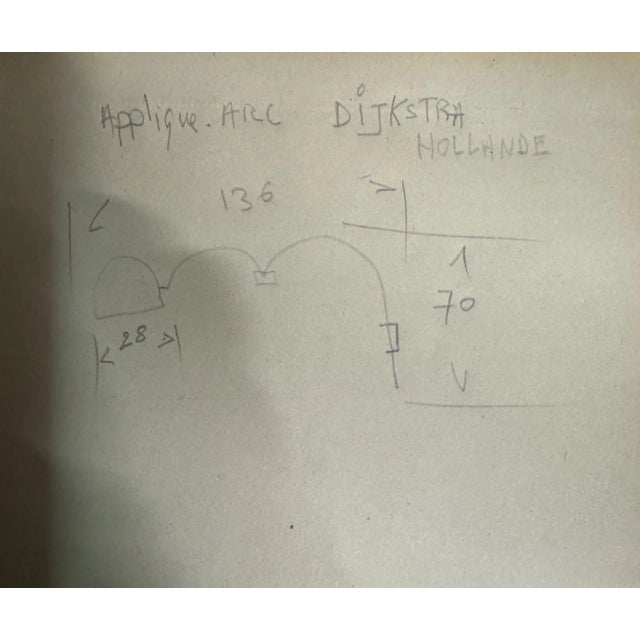 Applique. ARC DIJKSTRA
HOLLANDE
136
70
28